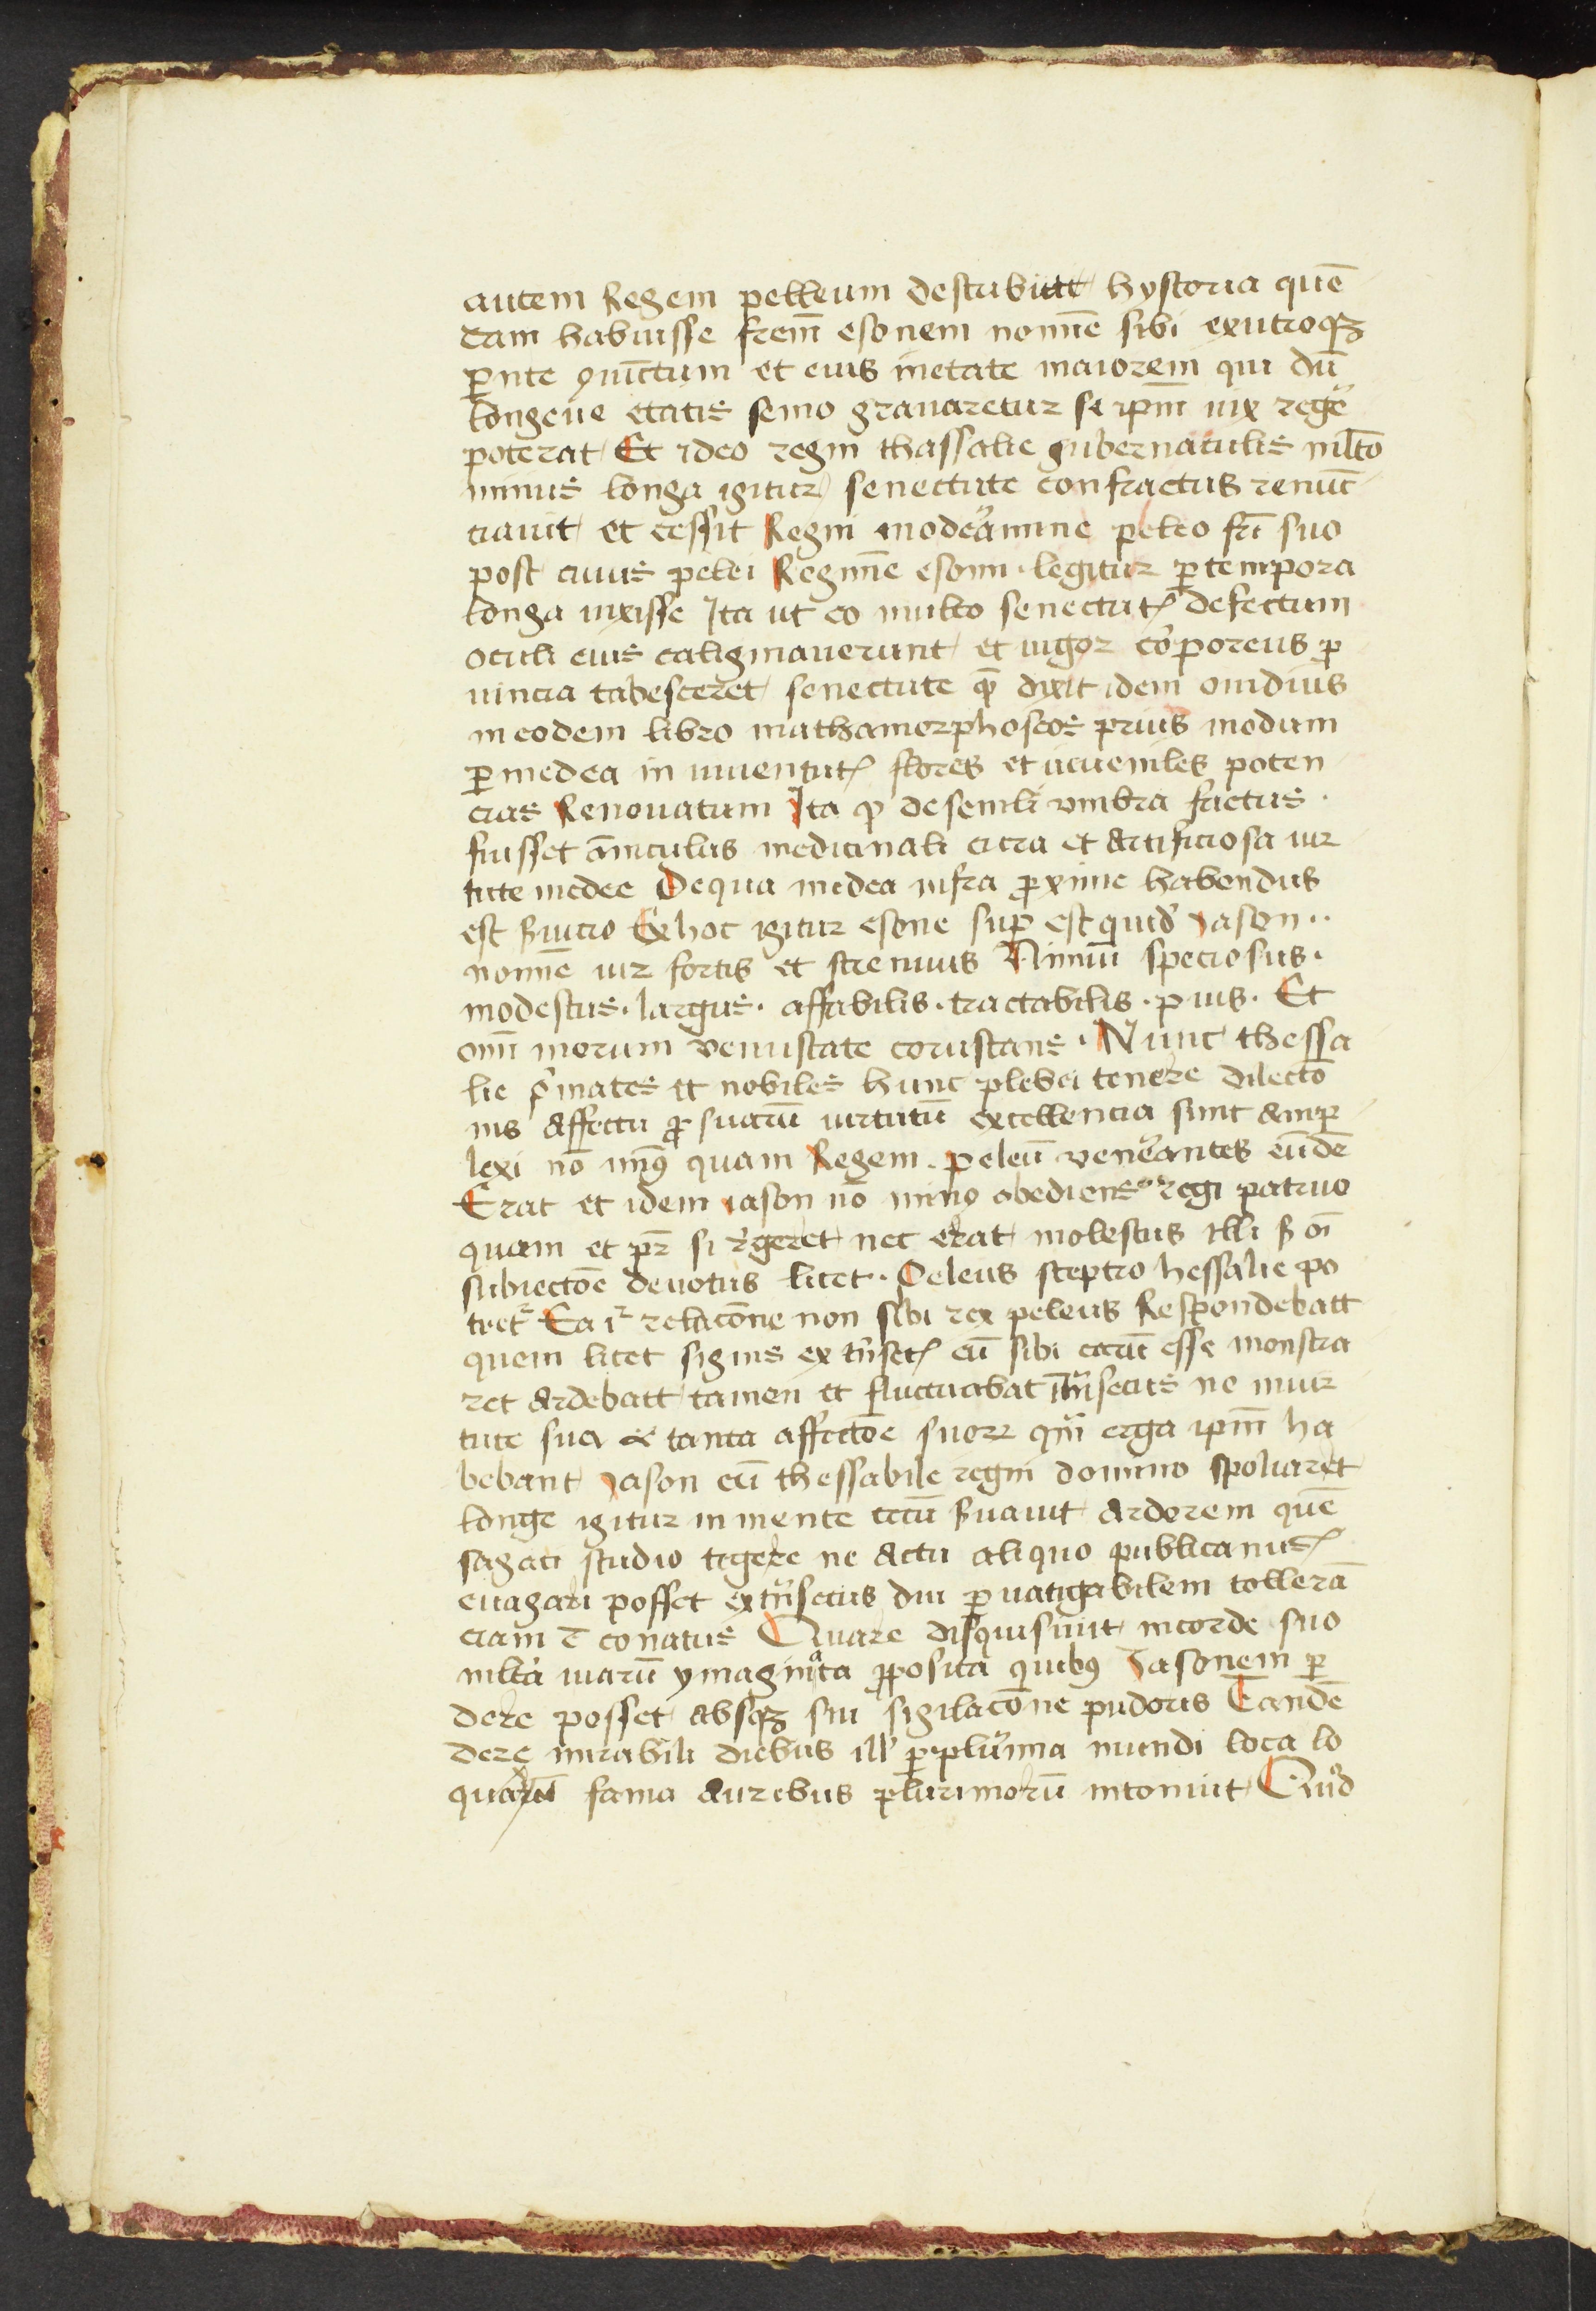 autem Regem pelleum describitt hystoria quen̄
dam habuisse frem̄ esonem nomīe sibi exutroqꝫ
ꝑnte ꝯiūctum et eius inetate maiorem qui dū
longeue etatis senio grauaretur se ip̄m uix regēʳ
poterat Et ideo regni thassalie gubernaculis ml̄to
minus longa igitur senectute confractus renūc
ciauit et cessit Regni modeāmine peleo fr̄i suo
post cuius pelei Regimīe esonu legitur ꝑ tempora
longa uixisse Ita ut eo multo senectutꝭ defectum
oculi eius caliginauerunt et uigor cōrporeus ꝑ
uincia tabesceret senectute qm̄ dixit idem ouidius
in eodem libro mathamorphoseos prius modum
ꝑ medea in iuuentutꝭ flores et iuueniles poten
cias Renouatum Ita ꝙ de senili vmbra factus ·
fuisset āniculus medicinali cura et Artificiosa uir
tute medee De qua medea infra ꝓxime habendus
est s̄mo Ex hoc igitur esone suꝑ est quid' iason ··
nomīe uir fortis et strenuus Nimiū speciosus ·
modestus · largus · affabilis · tractabilis · pius · Et
om̄i morum venustate coruscans · Nunc thessa
lie p̄mates et nobiles hunc plebei tenere dilectō
nis Affectu ꝓ suarū uirtutū excellencia sunt Amp
lexi nō minꝰ quam Regem peleū veneāntes eūdē
Erat et idem iason nō minꝰ obediens regi patruo
quam et pr̄ si r̄geret nec erat molestus illi s̄ oi
subiectōe deuotus licet · Peleus sceptro hessalie po
tret̄ Ea ir̄ relacōne non sibi rex peleus Respondebatt
quem licet signis ex tn̄setꝭ eū sibi carū esse monstra
ret Ardebatt tamen et fluctuabat int̄nsecus ne inuir
tute sua et tanta affectōe suorꝝ qm̄ erga ip̄m ha
bebant iason eū thessabile regni domino spoliaret
longe igitur in mente tectū s̄uauit Ardorem quē
sagaci studio tegere ne Actu aliquo publicanusꝭ
euagari posset ext̄nsecus diu ꝑ uatigabilem tollerā
ciam ē conatus Quare disquisiuit in corde suo
ml̄ta uiarū ymaginᵃta ꝓposita quibꝰ Iasonem ꝑ
dere posset Absqꝫ sui sigilacōne pudoris Tandē
dere mirabili diebus ill' ꝑ plurīma mundi loca lo
quarū fama Auribus plurimorū intonuit Quid